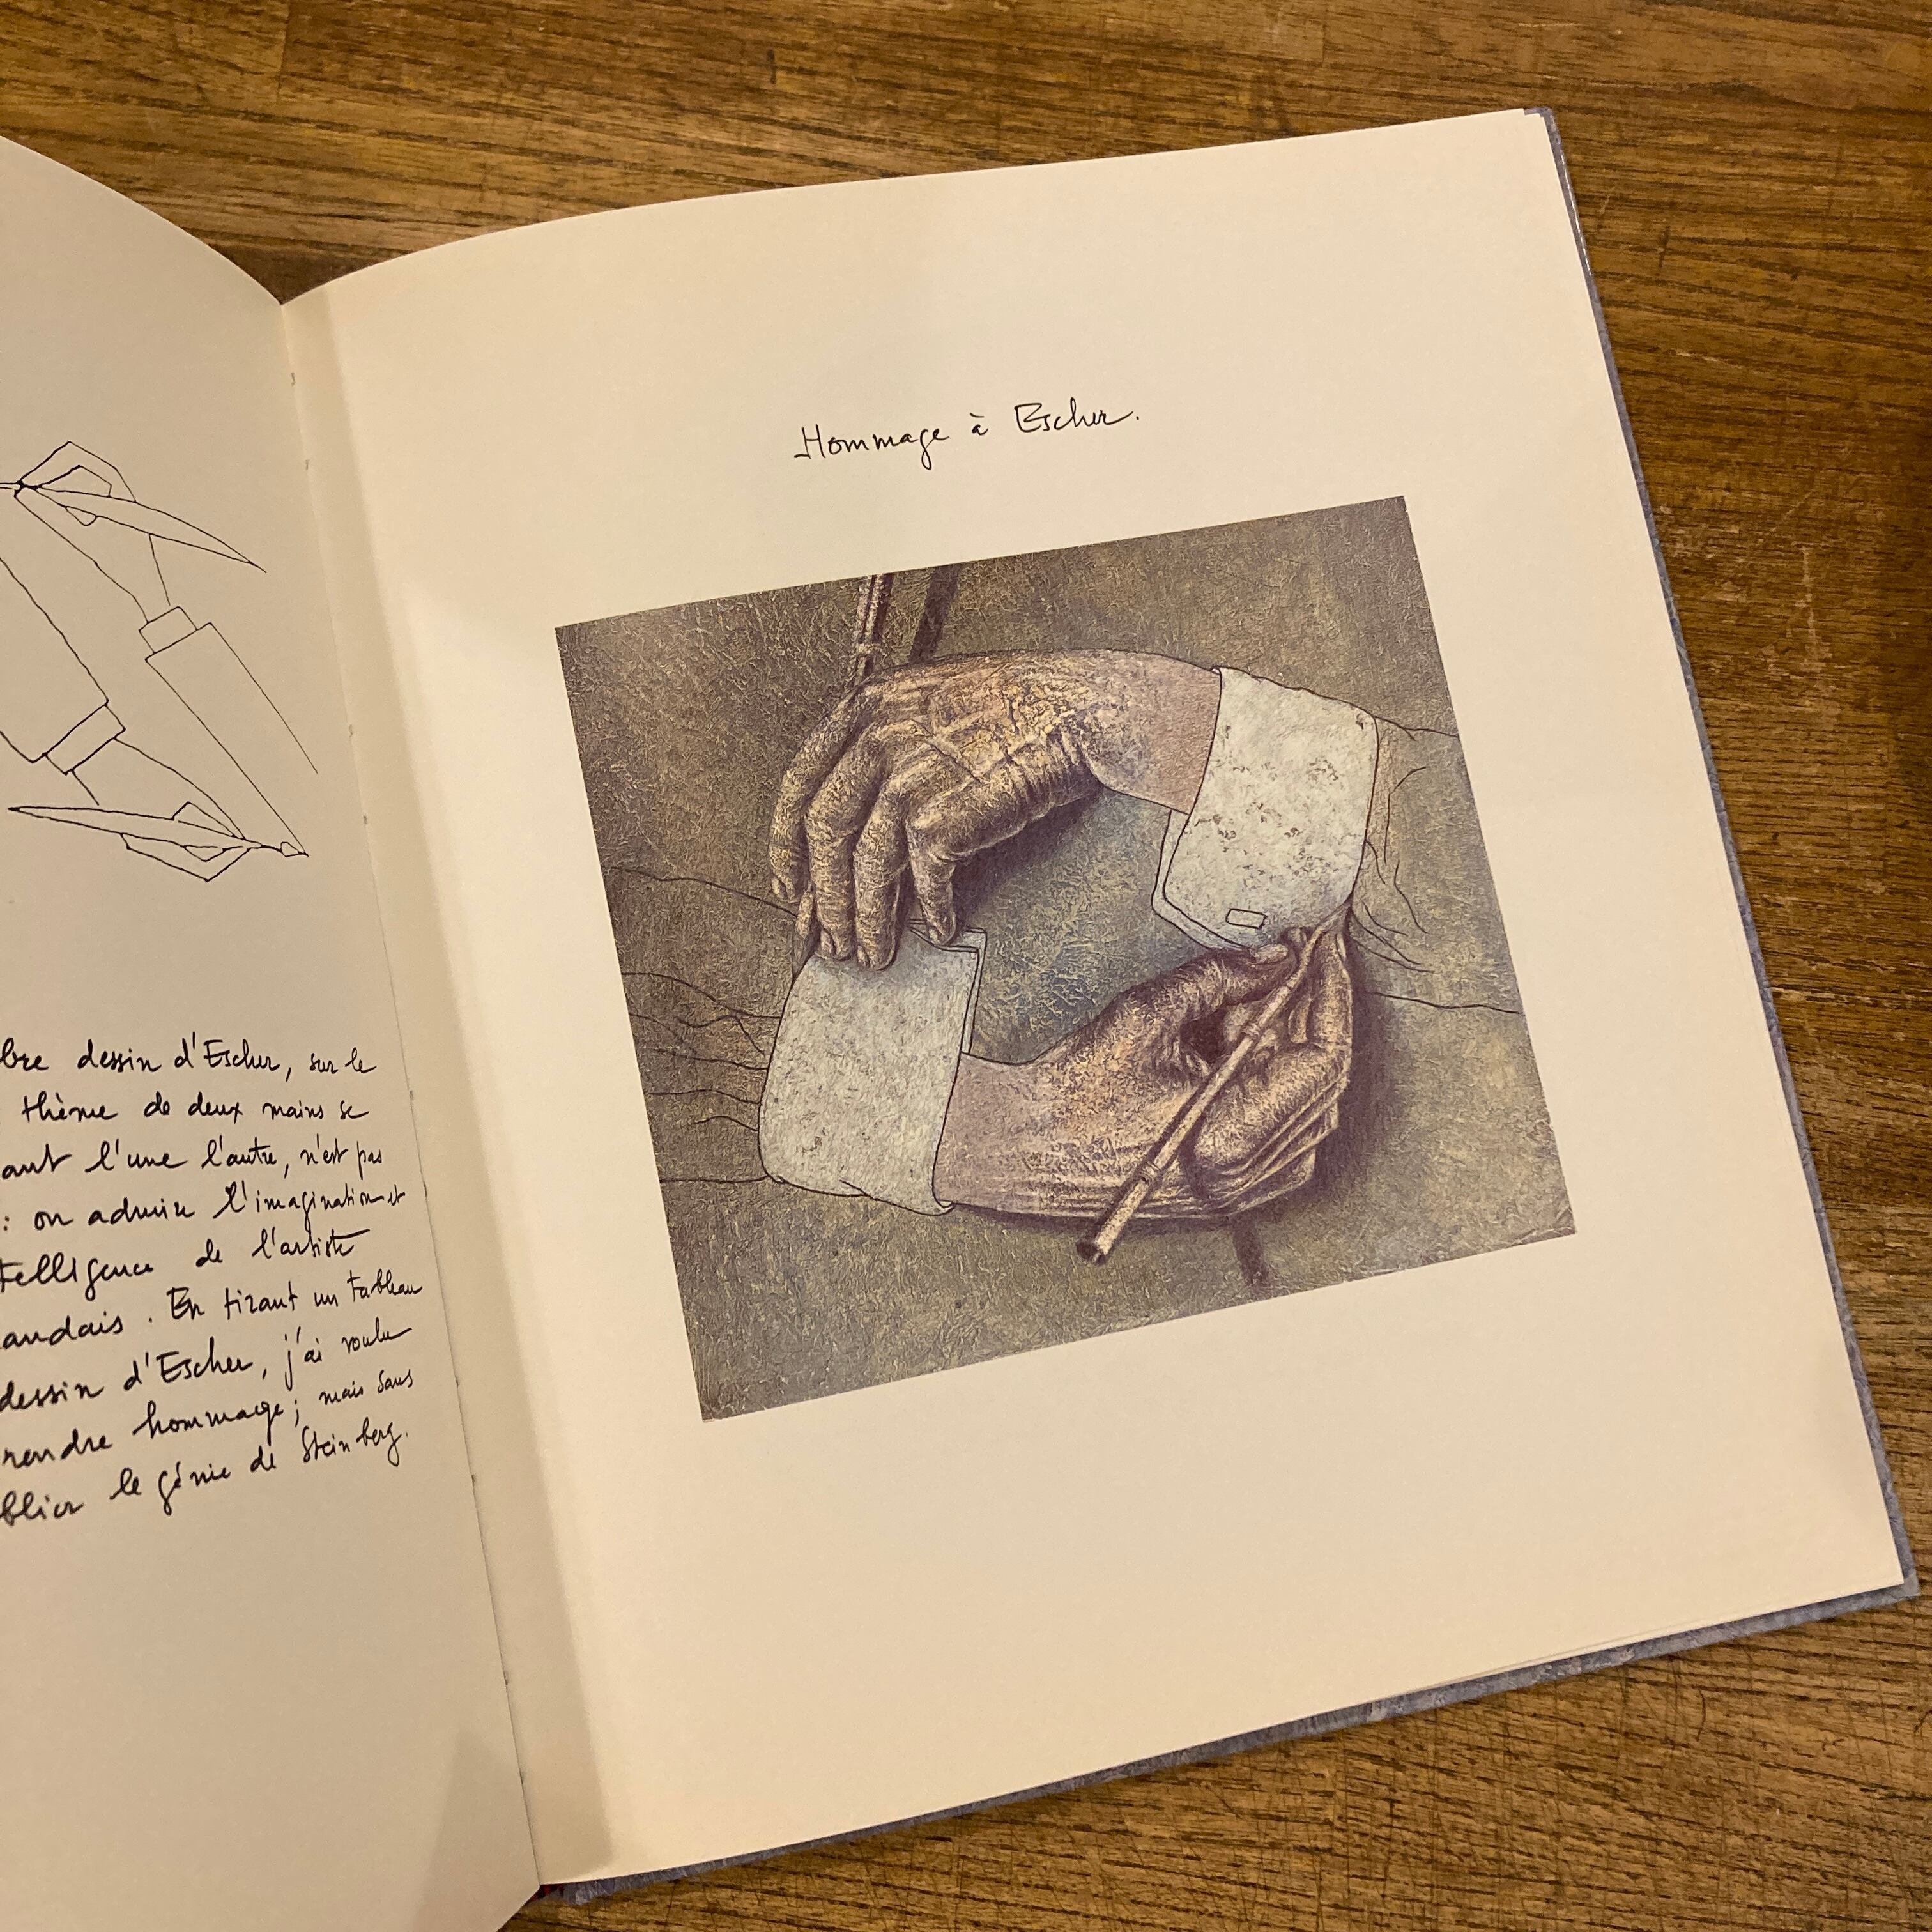 bre dessin d'Escher, sur le
thème de deux mains se
ant l'une l'autre, n'est pas
: on admire l'imagination et
telligence de l'artiste
andais. En tirant un tableau
dessin d'Escher, j'ai voulu
rendre hommage; mais sans
blier le génie de Steinberg.
Hommage à Escher.